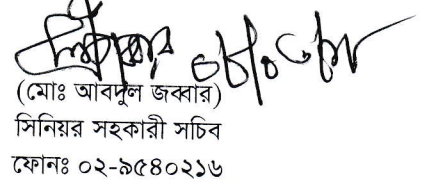 (মোঃ আবদুল জব্বার)
সিনিয়র সহকারী সচিব
ফোনঃ ০২-৯৫৪০২১৬